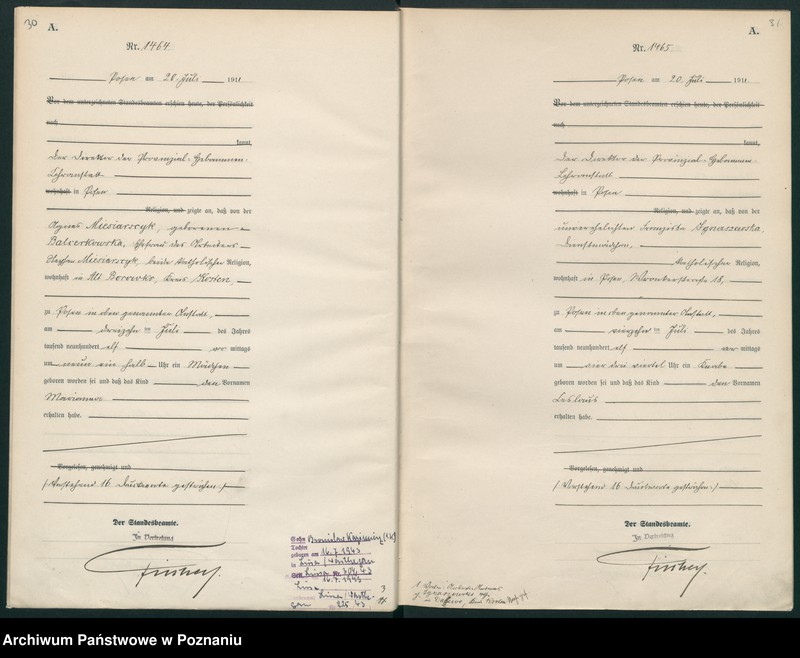 30
A.
Nr. 1464
Posen am 28. Juli 1911
Vor dem unterzeichneten Standesbeamten erschien heute, der Persönlichkeit
nach
kannt,
Der Direktor der Provinzial-Hebammen-
Lehranstalt
wohnhaft in Posen
Religion, und zeigte an, daß von der
Agnes geborenen
Ehefrau des
beide katholischer Religion,
wohnhaft in Alt Borowko, Kreis Kosten,
zu Posen in oben genannter Anstalt,
am dreizehn ten Juli des Jahres
tausend neunhundert elf vor mittags
um neun ein halb Uhr ein Mädchen
geboren worden sei und daß das Kind den Vornamen
Marianna
erhalten habe.
Vorgelesen, genehmigt und
/Vorstehend 16 Druckworte gestrichen./
Der Standesbeamte.
In Vertretung
Sohn Bronislaw Kazimierz
Tochter
geboren am 16.7.1943
in
31
A.
Nr. 1465
Posen am 20. Juli 1911
Vor dem unterzeichneten Standesbeamten erschien heute, der Persönlichkeit
nach
kannt,
Der Direktor der Provinzial-Hebammen-
Lehranstalt
wohnhaft in Posen
Religion, und zeigte an, daß von der
unverehelichten Franziska Ignaszewska,
Dienstmädchen,
katholischer Religion,
wohnhaft in Posen, Wronkerstraße 18,
zu Posen in oben genannter Anstalt,
am vierzehn ten Juli des Jahres
tausend neunhundert elf mittags
um vier drei viertel Uhr ein Knabe
geboren worden sei und daß das Kind den Vornamen
Ceslaus
erhalten habe.
Vorgelesen, genehmigt und
/Vorstehend 16 Druckworte gestrichen./
Der Standesbeamte.
In Vertretung
Archiwum Państwowe w Poznaniu